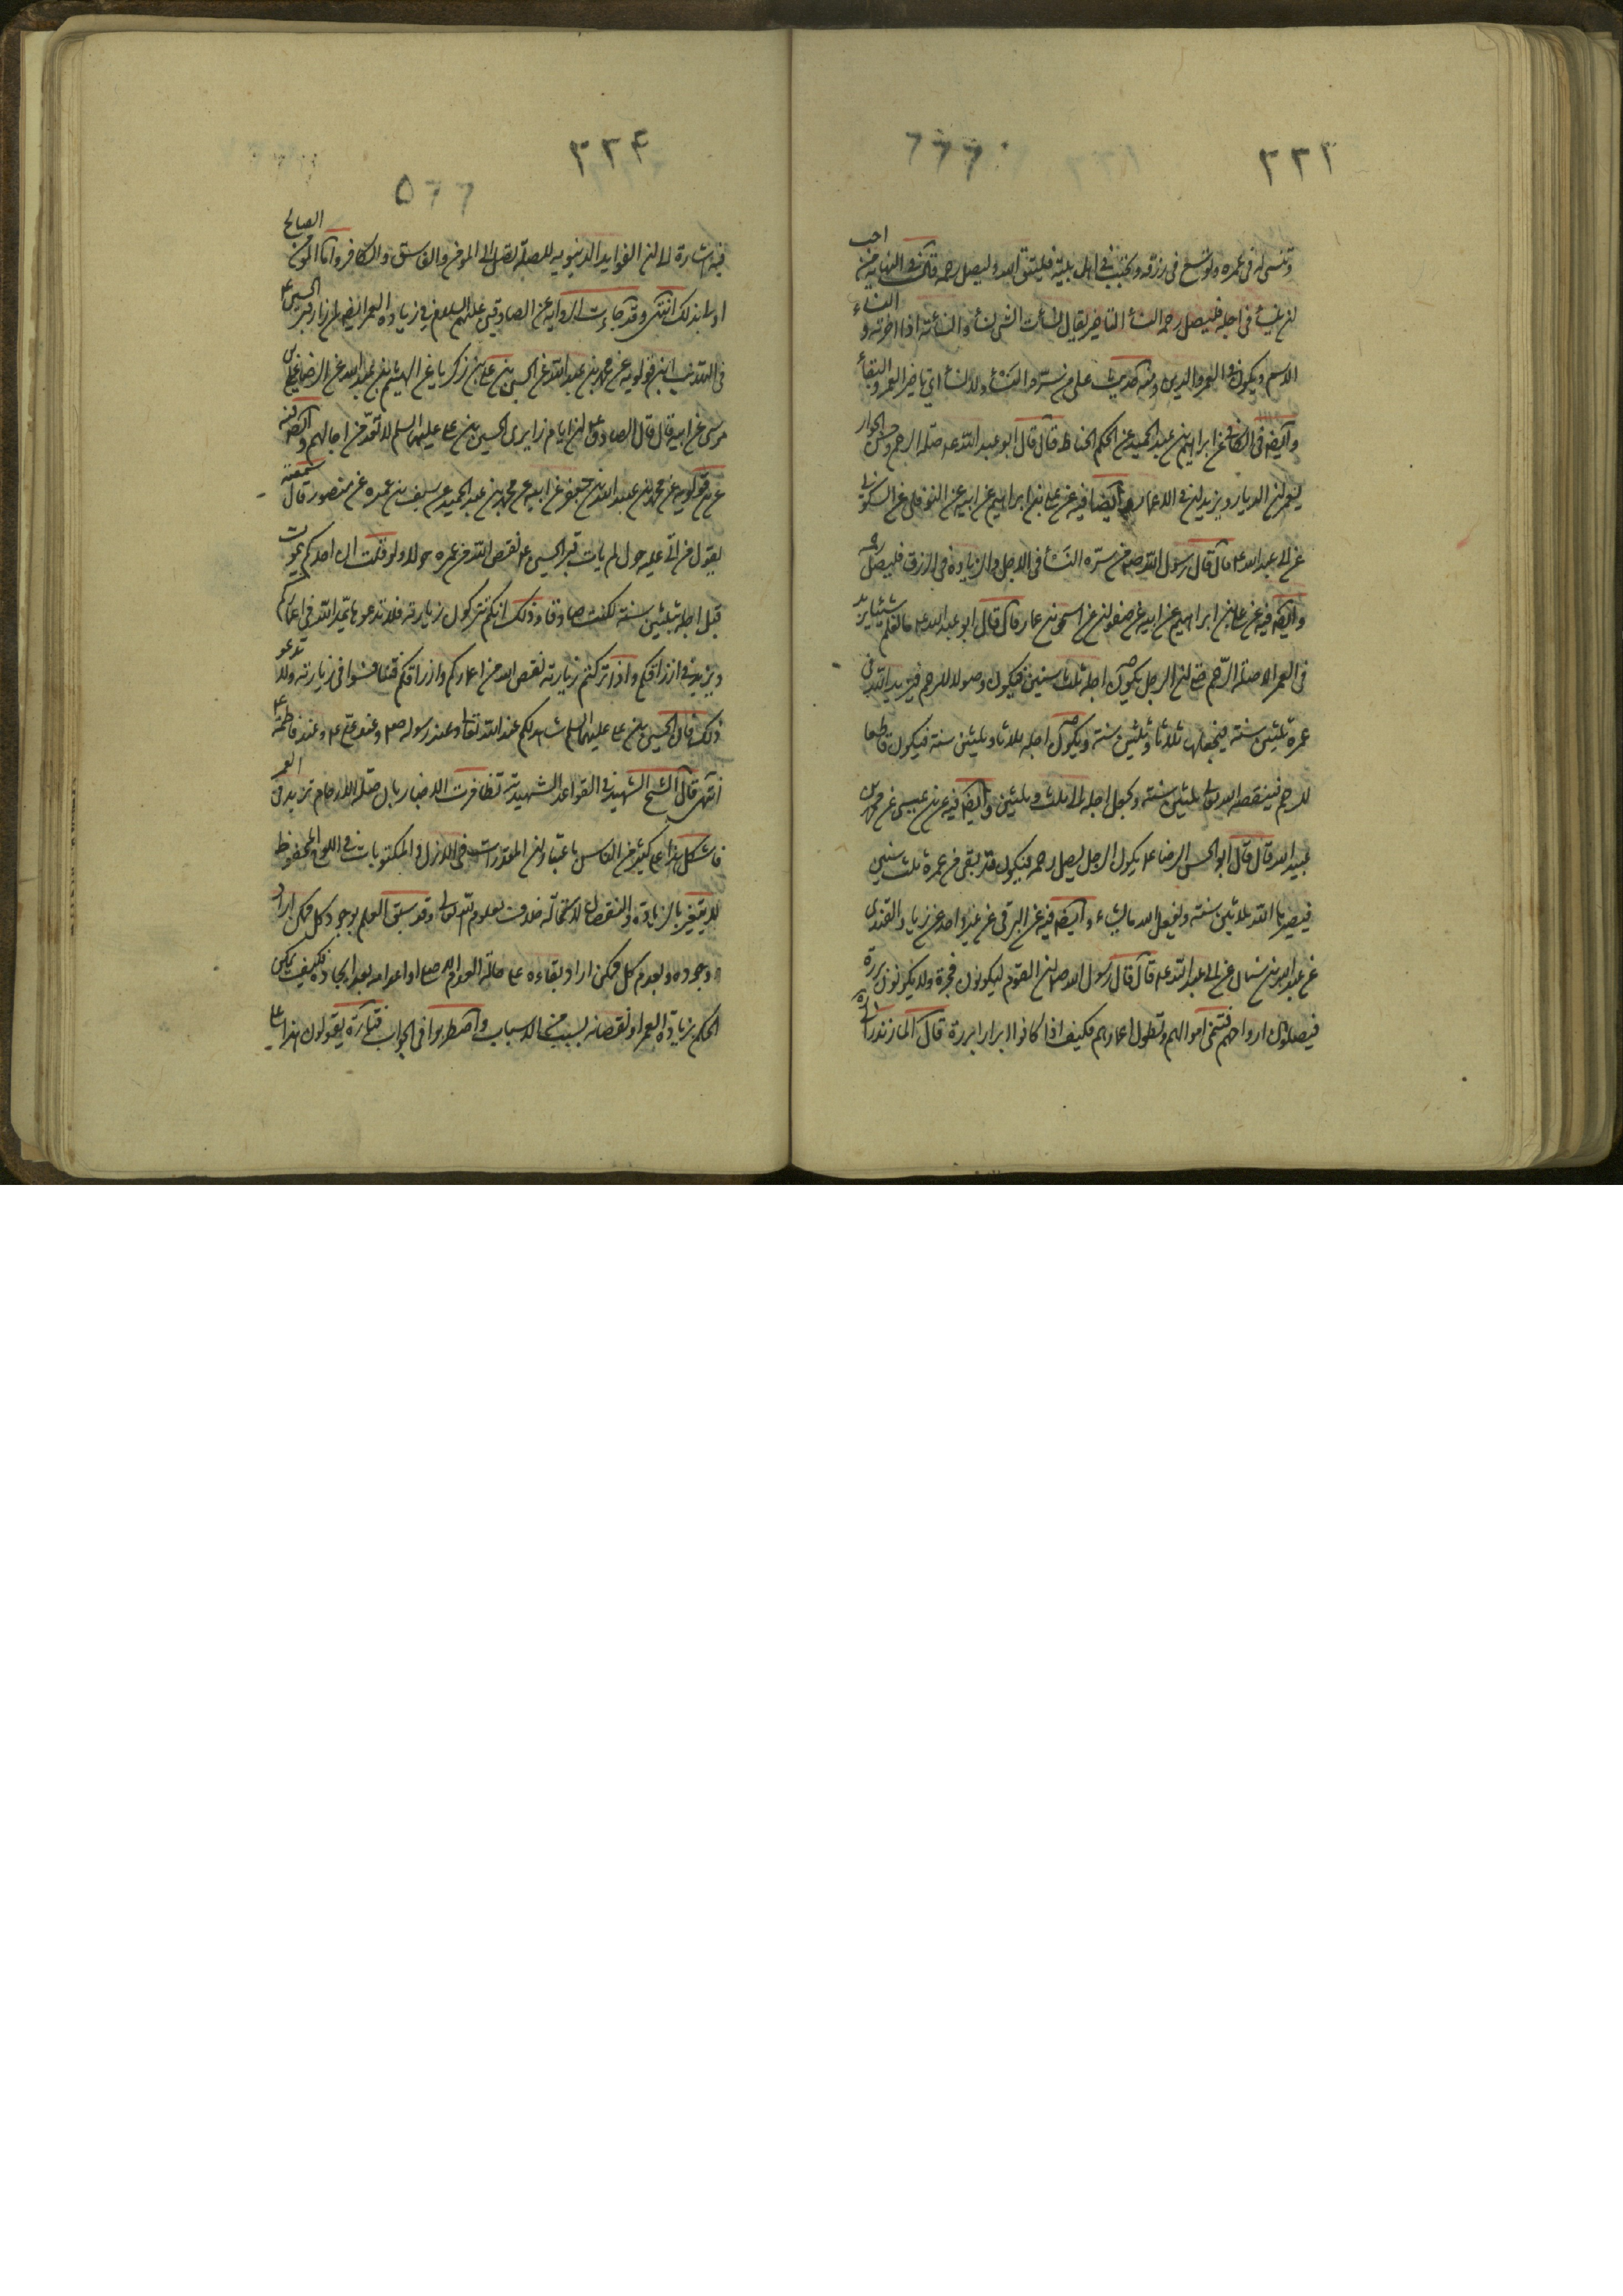 ٢٢٣
احب
وتنسى له فى عمره وتوسع فى رزقه وتحبب فى اهل بيته فليتق الله وليصل رحمه قال فى النهاية من
ان ينسأ فى اجله فليصل رحمه النسأ التأخير يقال نسأت الشى نسأ وانسأته اذا اخرته و النساء
الاسم ويكون فى العمر والدين ومنه الحديث على من سره النسأ ولا نسأ اى تأخير العمر والبقاء
وايضه فى الكافى عن ابراهيم بن عبد الحميد عن الحكم الخياط قال قال ابو عبد الله عه صلة الرحم وحسن الجوار
يعمران الديار ويزيدان فى الاعمار وايضا فيه عن على بن ابراهيم عن ابيه عن النوفلى عن السكونى
عن ابى عبد الله عه قال قال رسول الله صم من سره النسأ فى الاجل والزيادة فى الرزق فليصل رحمه
وايضه فيه عن على بن ابراهيم عن ابيه عن صفوان عن اسحق بن عمار قال قال ابو عبد الله عه ما نعلم شيئا يزيد
فى العمر الا صلة الرحم حتى ان الرجل يكون اجله ثلث سنين فيكون وصولا للرحم فيزيد الله فى
عمره ثلثين سنة فيجعلها ثلاثا وثلثين سنة ويكون اجله ثلاثا وثلثين سنة فيكون قاطعا
للرحم فينقصه الله تعالى ثلثين سنة ويجعل اجله الى ثلث سنين وايضه فيه عن بن عيسى عن محمد بن
عبيد الله قال قال ابو الحسن الرضا عه يكون الرجل يصل رحمه فيكون قد بقى من عمره ثلث سنين
فيصيرها الله ثلاثين سنة ويفعل الله ما يشاء وايضه فيه عن البرقى عن غير واحد عن زياد القندى
عن عبد الله بن سنان عن ابى عبد الله عه قال قال رسول الله صم ان القوم ليكونون فجرة ولا يكونون بررة
فيصلون ارحامهم فتنمى اموالهم وتطول اعمارهم فكيف اذا كانوا ابرارا بررة قال المازندرانى
٢٢۴
فيه اشارة الى ان الفوايد الدنيوية للصلة تصل الى المؤمن والفاسق والكافر واما المؤمن الصالح
اولى بذلك انتهى وقد جاءت الرواية عن الصادقين عليهم السلام فى زيادة العمر ايضا لمن زار قبر الحسين عه
فى التهذيب ابن قولويه عن محمد بن عبد الله عن الحسن بن على بن زكريا عن الهيثم بن عبد الله عن الرضا على بن
موسى عن ابيه قال قال الصادق عه ان ايام زايرى الحسين بن على عليهما السلم لا تعد من اجالهم وايضه فيه
عن بن قولويه عن محمد بن عبد الله بن جعفر عن ابيه عن محمد بن عبد الحميد عن سيف بن عميره عن منصور قال سمعته
يقول من اتى عليه حول لم يات قبر الحسين عه نقص الله من عمره حولا ولو قلت ان احدكم يموت
قبل اجله بثلثين سنة لكنت صادقا وذلك انكم تتركون زيارته فلا تدعوها يمد الله فى اعماركم
ويزيد فى ارزاقكم واذا تركتم زيارته نقص الله من اعماركم وارزاقكم فتنافسوا فى زيارته ولا تدعو
ذلك فان الحسين بن على عليهما السلم شاهد لكم عند الله تعالى وعند رسوله صم وعند على عه وعند فاطمة عه
انتهى قال الشيخ الشهيد فى القواعد الشهيدية تظافرت الاخبار بان صلة الارحام تزيد فى العمر
فاشكل هذا على كثير من الناس باعتبار ان المقدرات فى الازل والمكتوبات فى اللوح المحفوظ
لا يتغير بالزيادة والنقصان لاستحالة خلاف معلوم الله تعالى وقد سبق العلم بوجود كل ممكن اراد
وجوده وبعدم كل ممكن اراد بقاءه على حالة العدم الاصلى او اعدامه بعد ايجاده فكيف يمكن
الحكم بزيادة العمر او نقصانه بسبب من الاسباب واضطربوا فى الجواب فتارة يقولون هذا على